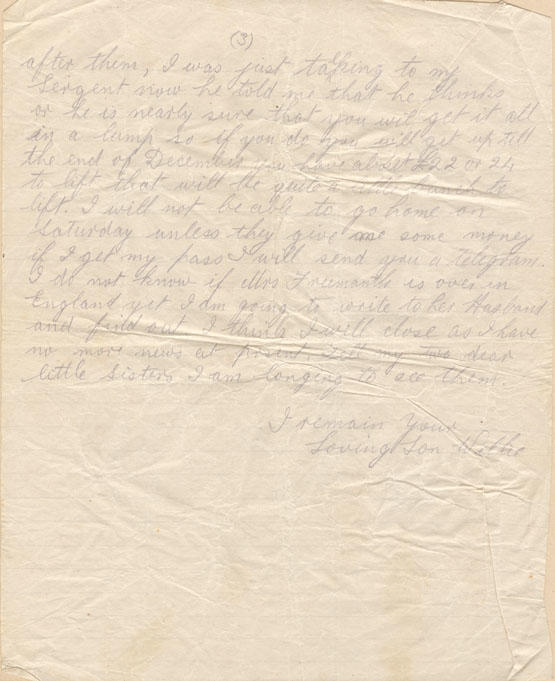 (3)
after them, I was just talking to my
Sergent now he told me that he thinks
or he is nearly sure that you will get it all
in a lump so if you do you will get up till
the end of December you have about £22 or 24
to lift that will be quite a little to
lift. I will not be able to go home on
Saturday unless they give me some money
if I get my pass I will send you a telegram.
I do not know if Mrs Freemantle is over in
England yet I am going to write to her Husband
and find out I think I will close as I have
no more news at present. Tell my two dear
little Sisters I am longing to see them.
I remain Your
Loving Son Willie